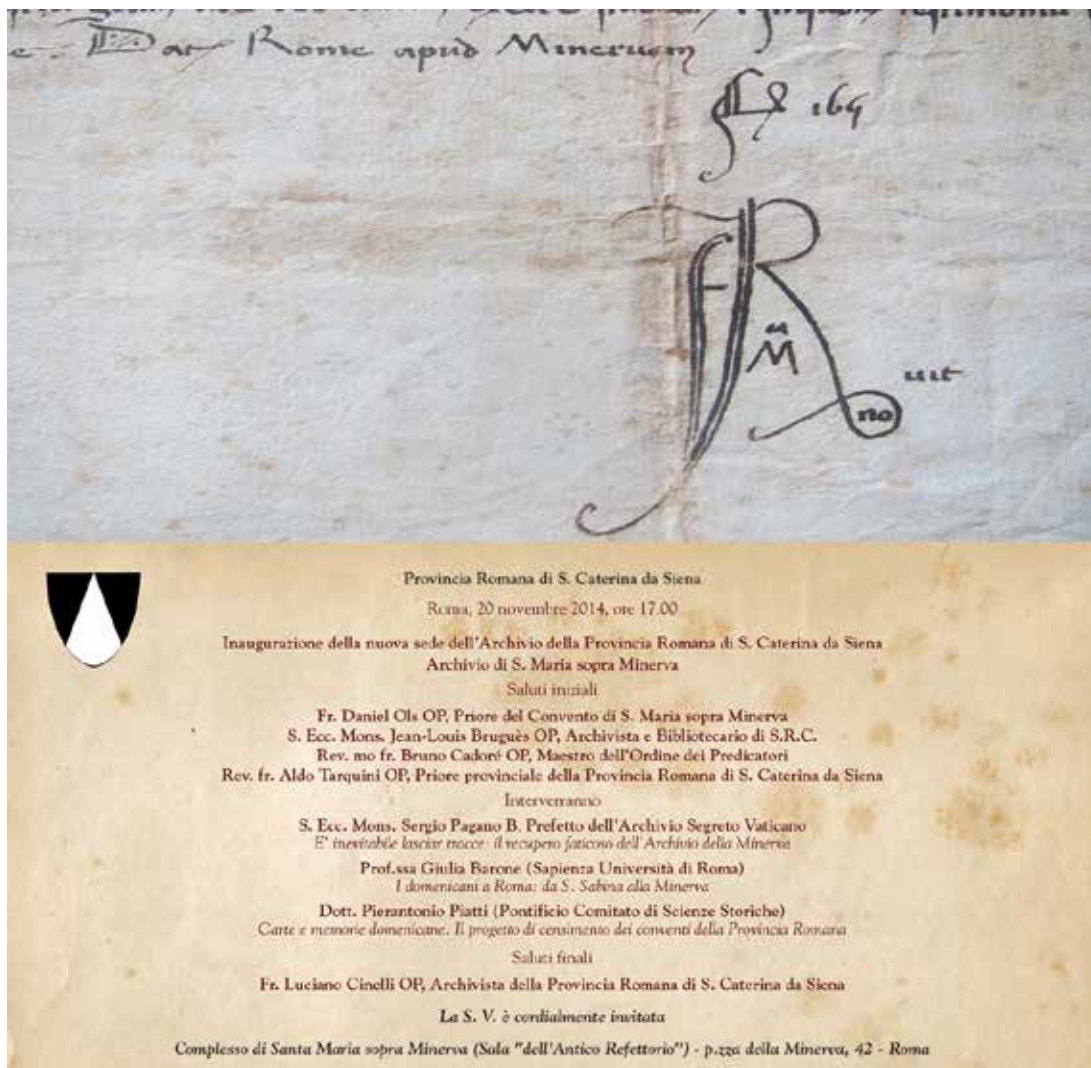 e. Dat Rome apud Minervam
169
FR
M
no
Provincia Romana di S. Caterina da Siena
Roma, 20 novembre 2014, ore 17.00
Inaugurazione della nuova sede dell'Archivio della Provincia Romana di S. Caterina da Siena
Archivio di S. Maria sopra Minerva
Saluti iniziali
Fr. Daniel Ols OP, Priore del Convento di S. Maria sopra Minerva
S. Ecc. Mons. Jean-Louis Bruguès OP, Archivista e Bibliotecario di S.R.C.
Rev. mo fr. Bruno Cadoré OP, Maestro dell'Ordine dei Predicatori
Rev. fr. Aldo Tarquini OP, Priore provinciale della Provincia Romana di S. Caterina da Siena
Interverranno
S. Ecc. Mons. Sergio Pagano B. Prefetto dell'Archivio Segreto Vaticano
E' inevitabile lasciar tracce: il recupero faticoso dell'Archivio della Minerva
Prof.ssa Giulia Barone (Sapienza Università di Roma)
I domenicani a Roma: da S. Sabina alla Minerva
Dott. Pierantonio Piatti (Pontificio Comitato di Scienze Storiche)
Carte e memorie domenicane. Il progetto di censimento dei conventi della Provincia Romana
Saluti finali
Fr. Luciano Cinelli OP, Archivista della Provincia Romana di S. Caterina da Siena
La S. V. è cordialmente invitata
Complesso di Santa Maria sopra Minerva (Sala "dell'Antico Refettorio") - p.zza della Minerva, 42 - Roma